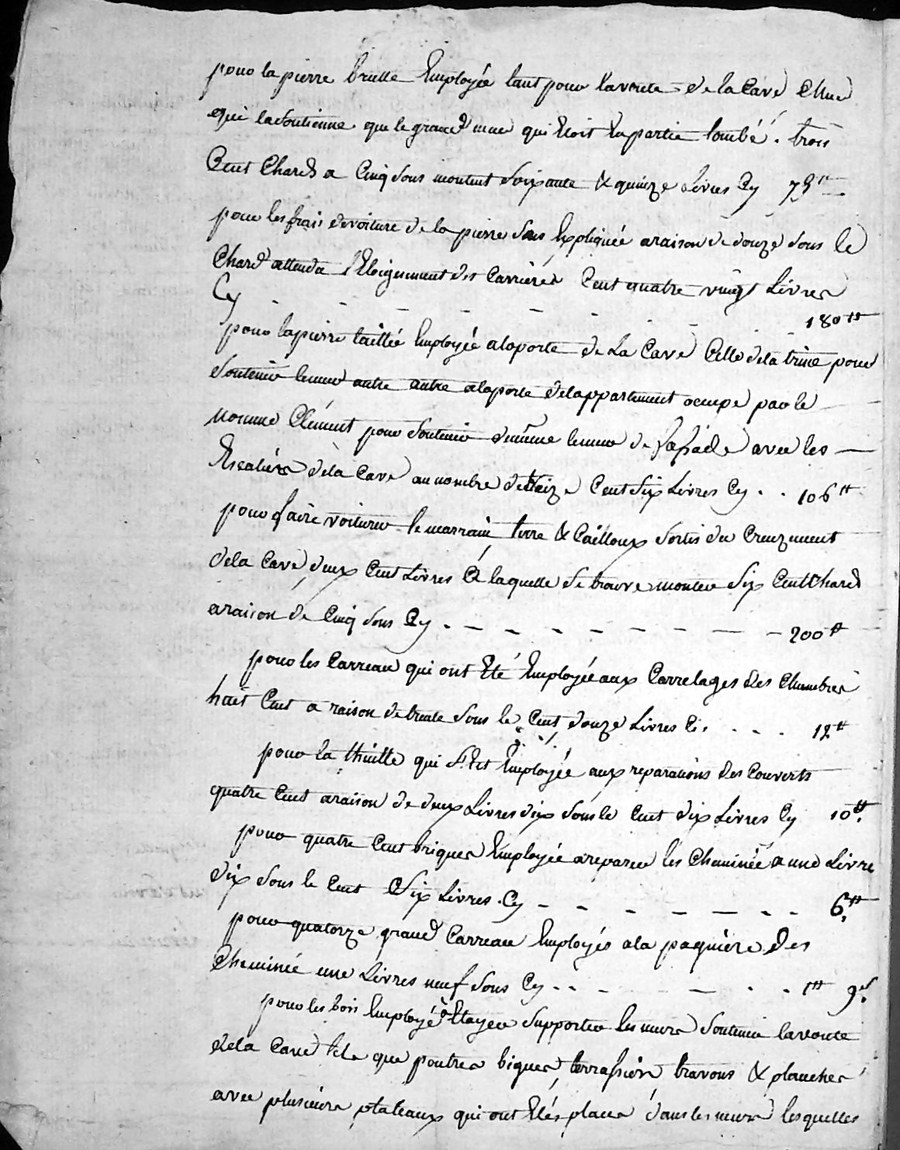 pour la pierre brutte Employée tant pour la voute de la Cave Mur
qui la Soutienne que le grand mur qui Etoit En partie tombé. trois
Cent Chard a Cinq Sous montent Soixante & quinze Livres Cy 75 tt
pour les frais de voiture de la pierre Sus Expliquée a raison de douze Sous le
Chard attendu l'Eloignement des Carrières Cent quatre vingt Livres
Cy - - - - - 180 tt
pour la pierre taillée Employée a la porte de La Cave Celle de la trine pour
Soutenir le mur autre autre a la porte de l'appartement occupé par le
nommé Clément pour Soutenir de même le mur de fasade avec les
Escaliers de la Cave au nombre de treize Cent Six Livres Cy . . 106 tt
pour faire voiturer le marrain terre & Cailloux Sortis du Creuzement
de la Cave deux Cent Livres a laquelle Se trouve monter Six Cent Chard
a raison de Cinq Sous Cy - - - - - - 200 tt
pour les Carreau qui ont Eté Employée aux Carrelages des Chambres
huit Cent a raison de trente Sous le Cent douze Livres Ci . . . . 12 tt
pour la thuille qui S'Est Employée aux reparations des Couverts
quatre Cent a raison de deux Livres dix Sous le Cent dix Livres Cy 10 tt
pour quatre Cent briques Employée a reparer les Cheminée a une Livre
dix Sous le Cent Six Livres Cy - - - - - - 6 tt
pour quatorze grand Carreau Employés a la paquière des
Cheminée une Livres neuf Sous Cy . . - - . . 1 tt 9 s
pour les bois Employé a Etayer Supporter les murs Soutenir la voute
de la Cave tels que poutres bigues terrassiers travons & planches
avec plusieurs plateaux qui ont Etés places dans les murs lesquelles